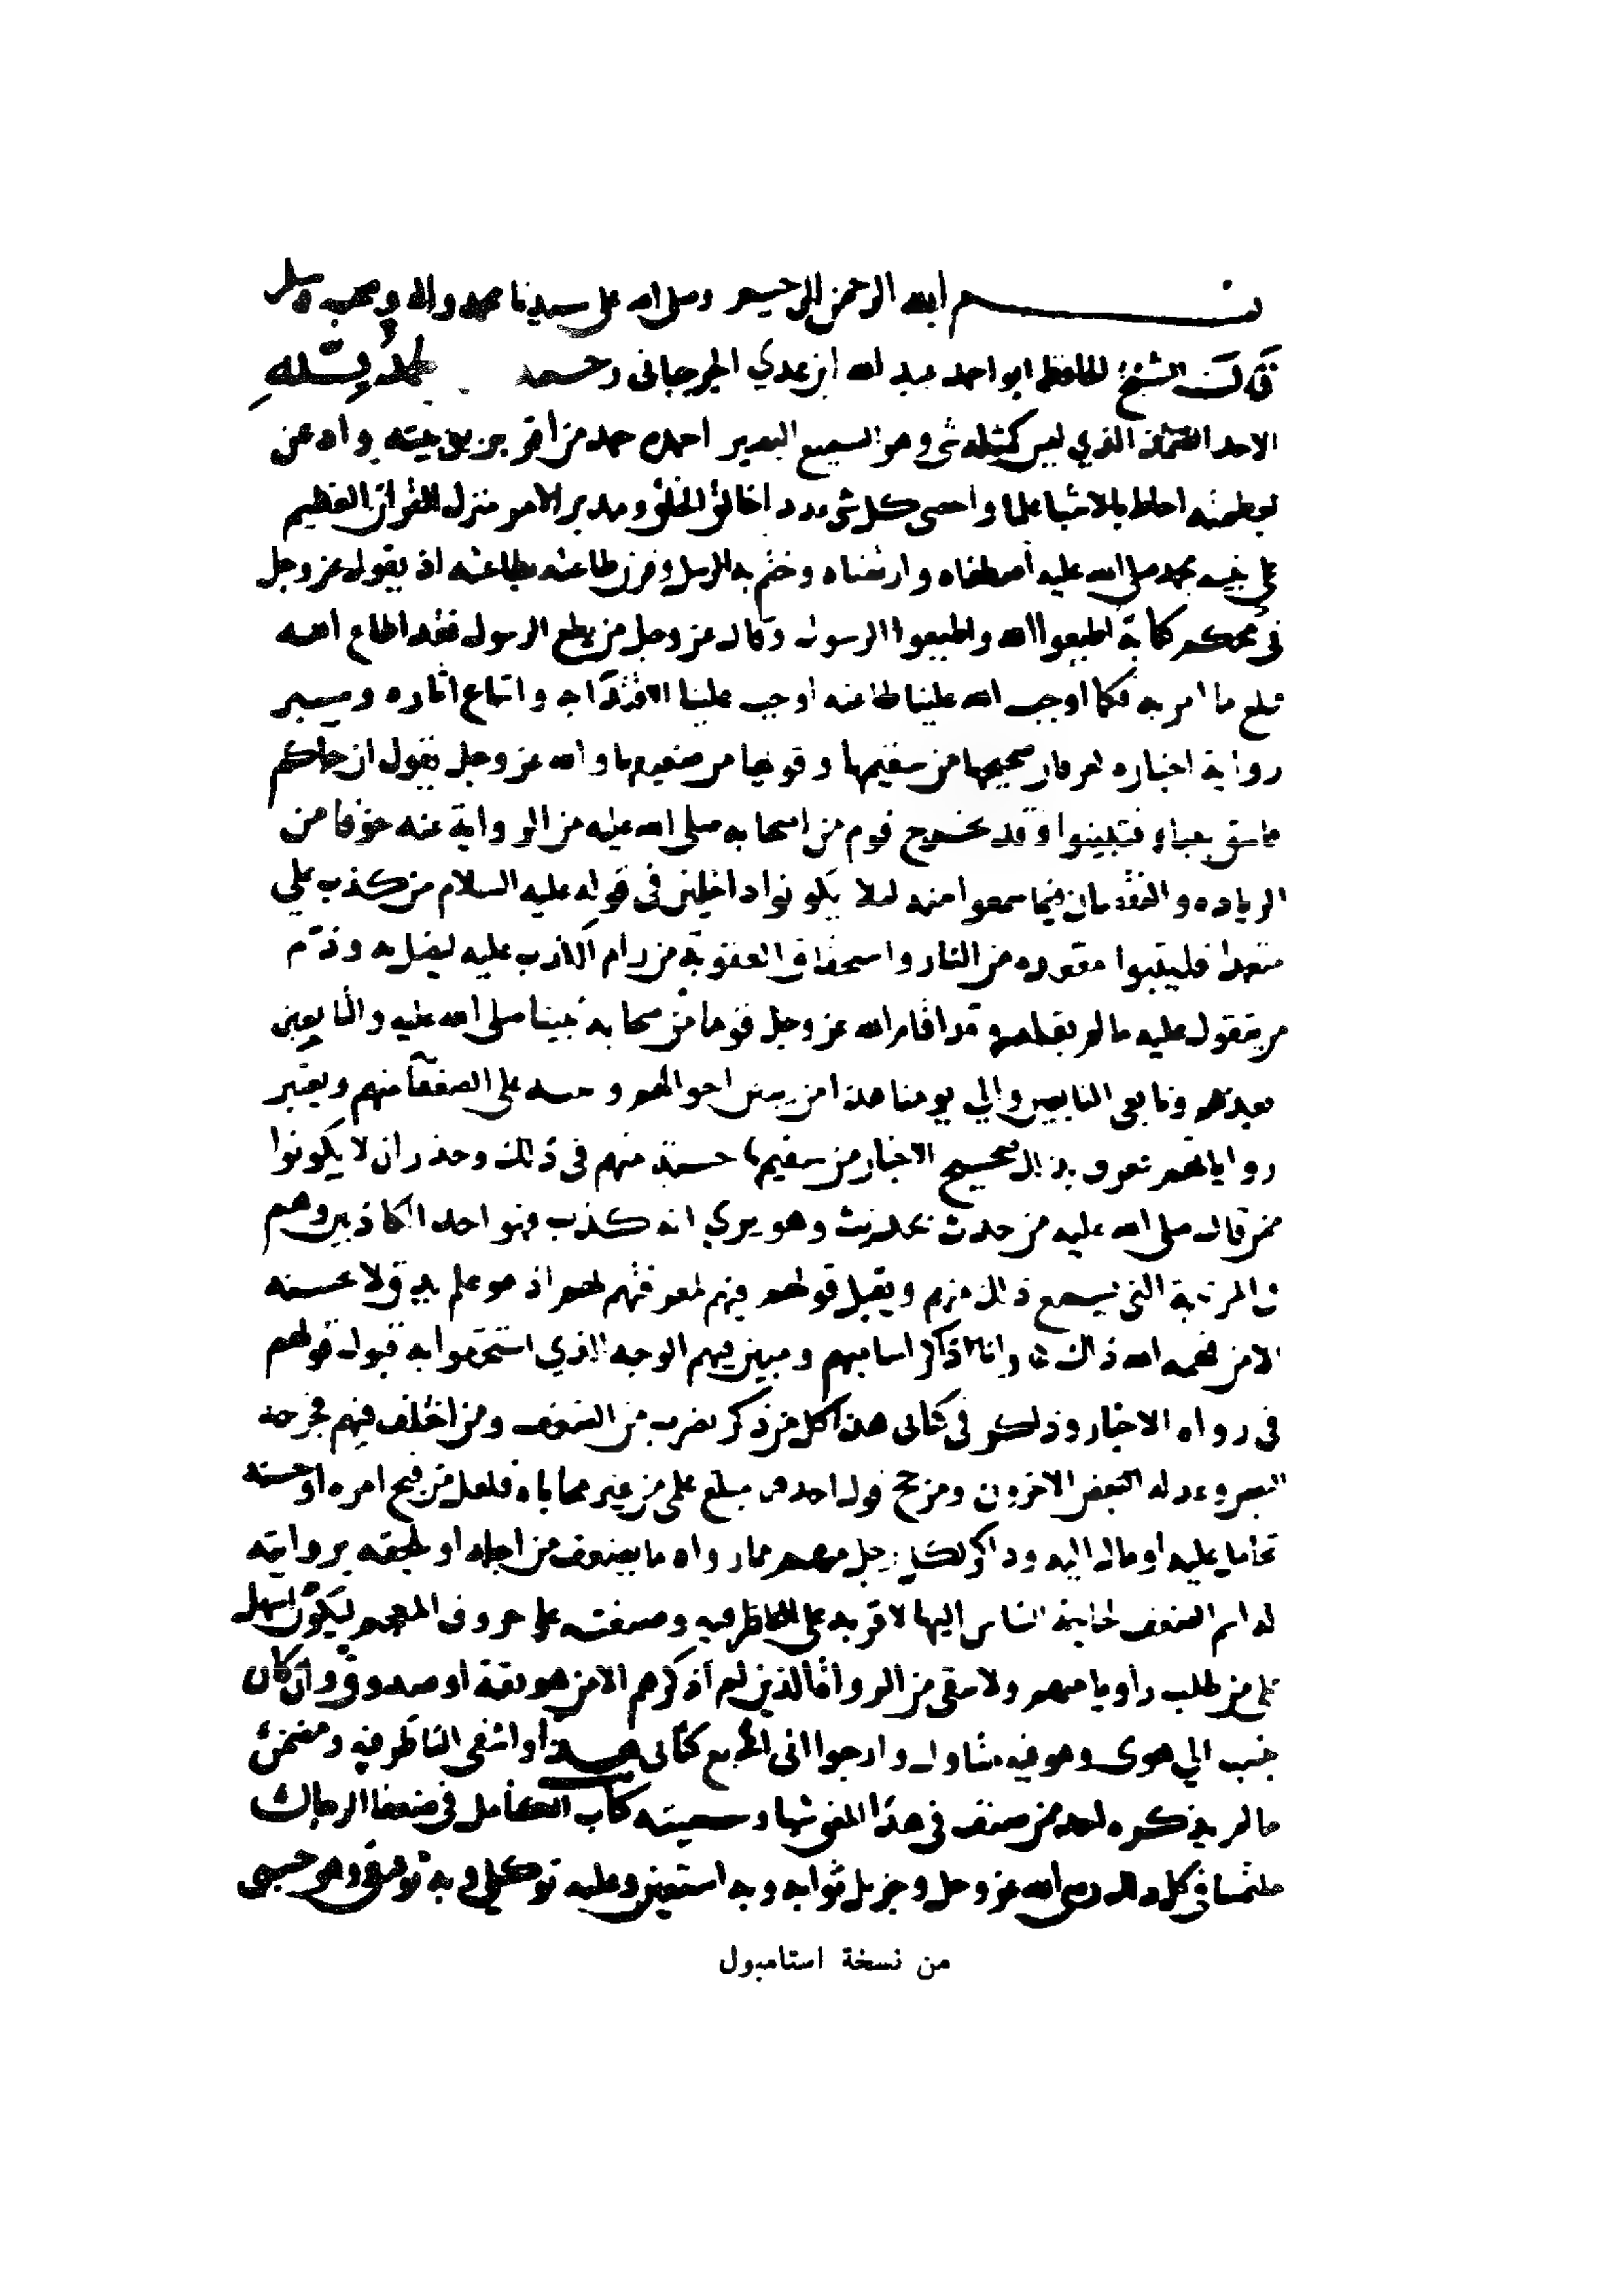 بسم الله الرحمن الرحيم وصلى الله على سيدنا محمد واله وصحبه وسلم
قال الشيخ الحافظ ابو احمد عبد الله ابن عدي الجرجاني رحمه الحمد لله
الاحد الصمد الذي ليس كمثله شي وهو السميع البصير احمده حمد من اقر بربوبيته واذعن
لعظمته احاط بالاشيا علما واحصى كل شي عددا خالق الخلق ومدبر الامر منزل القران العظيم
على نبيه محمد صلى الله عليه اصطفاه وارتضاه وختم به الرسل وقرن طاعته بطاعته اذ يقول عز وجل
في محكم كتابه اطيعوا الله واطيعوا الرسول وقال عز وجل من يطع الرسول فقد اطاع الله
بلغ ما امر به فكما اوجب الله علينا طاعته اوجب علينا الاقتدا به واتباع اثاره
رواية اخباره لعرفان صحيحها من سقيمها وقويها من ضعيفها والله عز وجل يقول ان جاكم
فاسق بنباء فتبينوا وقد تحرج قوم من اصحابه صلى الله عليه من الرواية عنه خوفا من
الزياده والنقصان فيما سمعوا منه لئلا يكونوا داخلين في قوله عليه السلام من كذب علي
متعمدا فليتبوا مقعده من النار واستحقاق العقوبة من رام الكذب عليه ليضل به وذم
من يتقول عليه ما لم يقله وقد اقام الله عز وجل قوما من صحابة نبينا صلى الله عليه والتابعين
بعدهم وتابعي التابعين والى يومنا هذا من يبين احوالهم وينبه على الضعفا منهم ويعتبر
رواياتهم تعرف بذلك صحيح الاخبار من سقيمها حسبة منهم في ذلك وحذر ان لا يكونوا
ممن قال صلى الله عليه من حدث بحديث وهو يرى انه كذب فهو احد الكاذبين وهم
في المرتبة التي يسمع ذلك منهم ويقبل قولهم فيهم لمعرفتهم لهم اذ هو علم يدق ولا يحسنه
الا من فهمه الله ذلك وانا ذاكر اساميهم ومبين فيهم الوجه الذي استحقوا به قبول قولهم
في رواه الاخبار وذاكر في كتابي هذا كل من ذكر بضرب من الضعف ومن اختلف فيهم فجرحه
البعض وعدله البعض الاخرون ومرجح قول احدهم مبلغ علمي من غير محاباه فلعل من قبح امره او حسنه
تحامل عليه او مال اليه وذاكر لكل رجل منهم مما رواه ما يضعف من اجله او يلحقه بروايته
له اسم الضعف لحاجة الناس اليها لاقربه على الناظر فيه وصنفته على حروف المعجم ليكون اسهل
على من طلب راويا منهم ولا يبقى من الرواة الذين لم اذكرهم الا من هو ثقة او صدوق وان كان
ينسب الى هوى وهو فيه متاول وارجوا اني اشبع كتابي هذا واشفي الناظر فيه ومضمن
ما لم يذكره احد ممن صنف في هذا المعنى شيا وسميته كتاب الكامل في ضعفا الرجال
ملتمسا في كل ذلك رضى الله عز وجل وجزيل ثوابه وبه استعين وعليه توكلي وبه توفيقي وهو حسبي
من نسخة استامبول